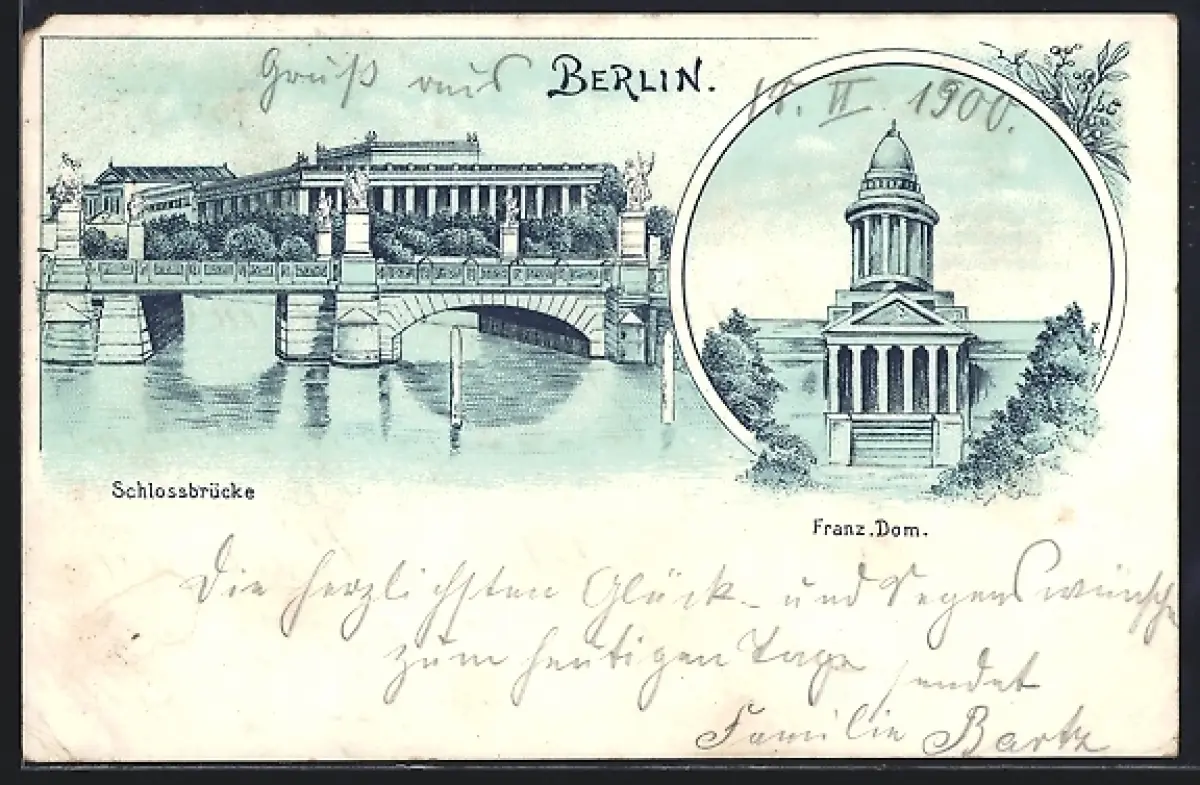 Gruß aus BERLIN.
II. 1900.
Schlossbrücke
Franz. Dom.
Die herzlichsten Glück- und Segenswünsche
zum heutigen Tage sendet
Familie Bartz